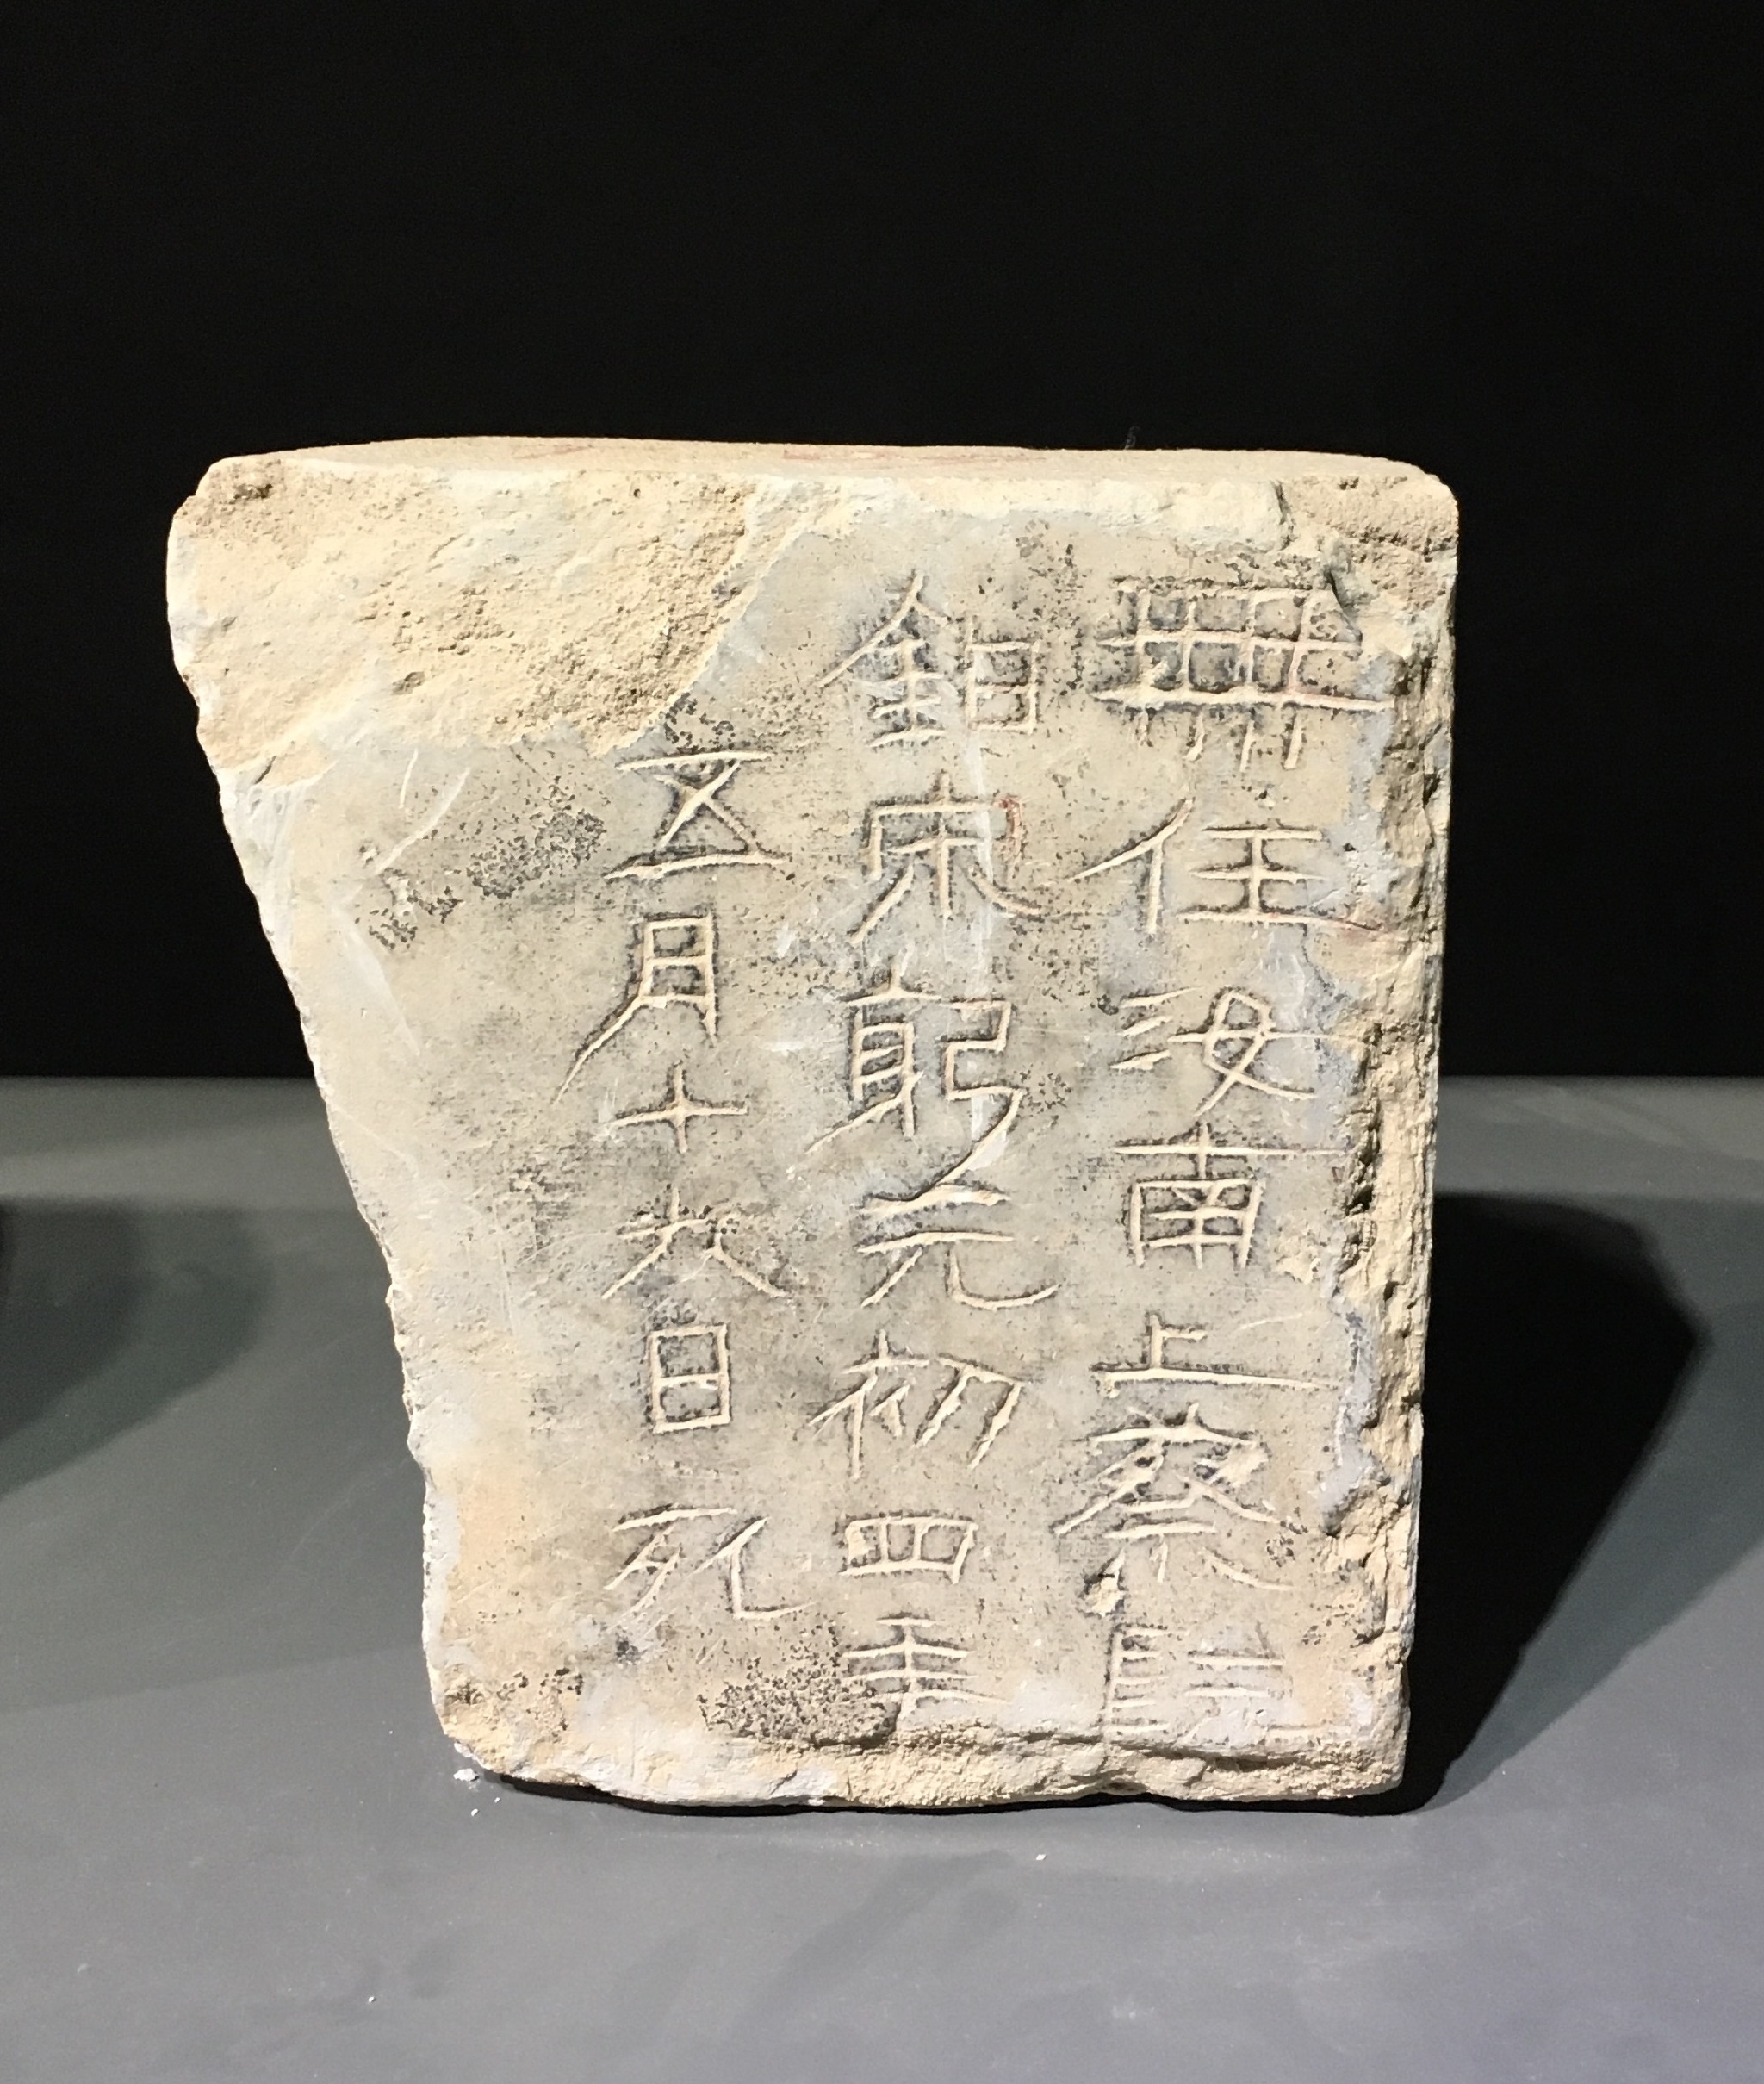 無任汝南上蔡髡
鉗宋躬元初四年
五月十六日死